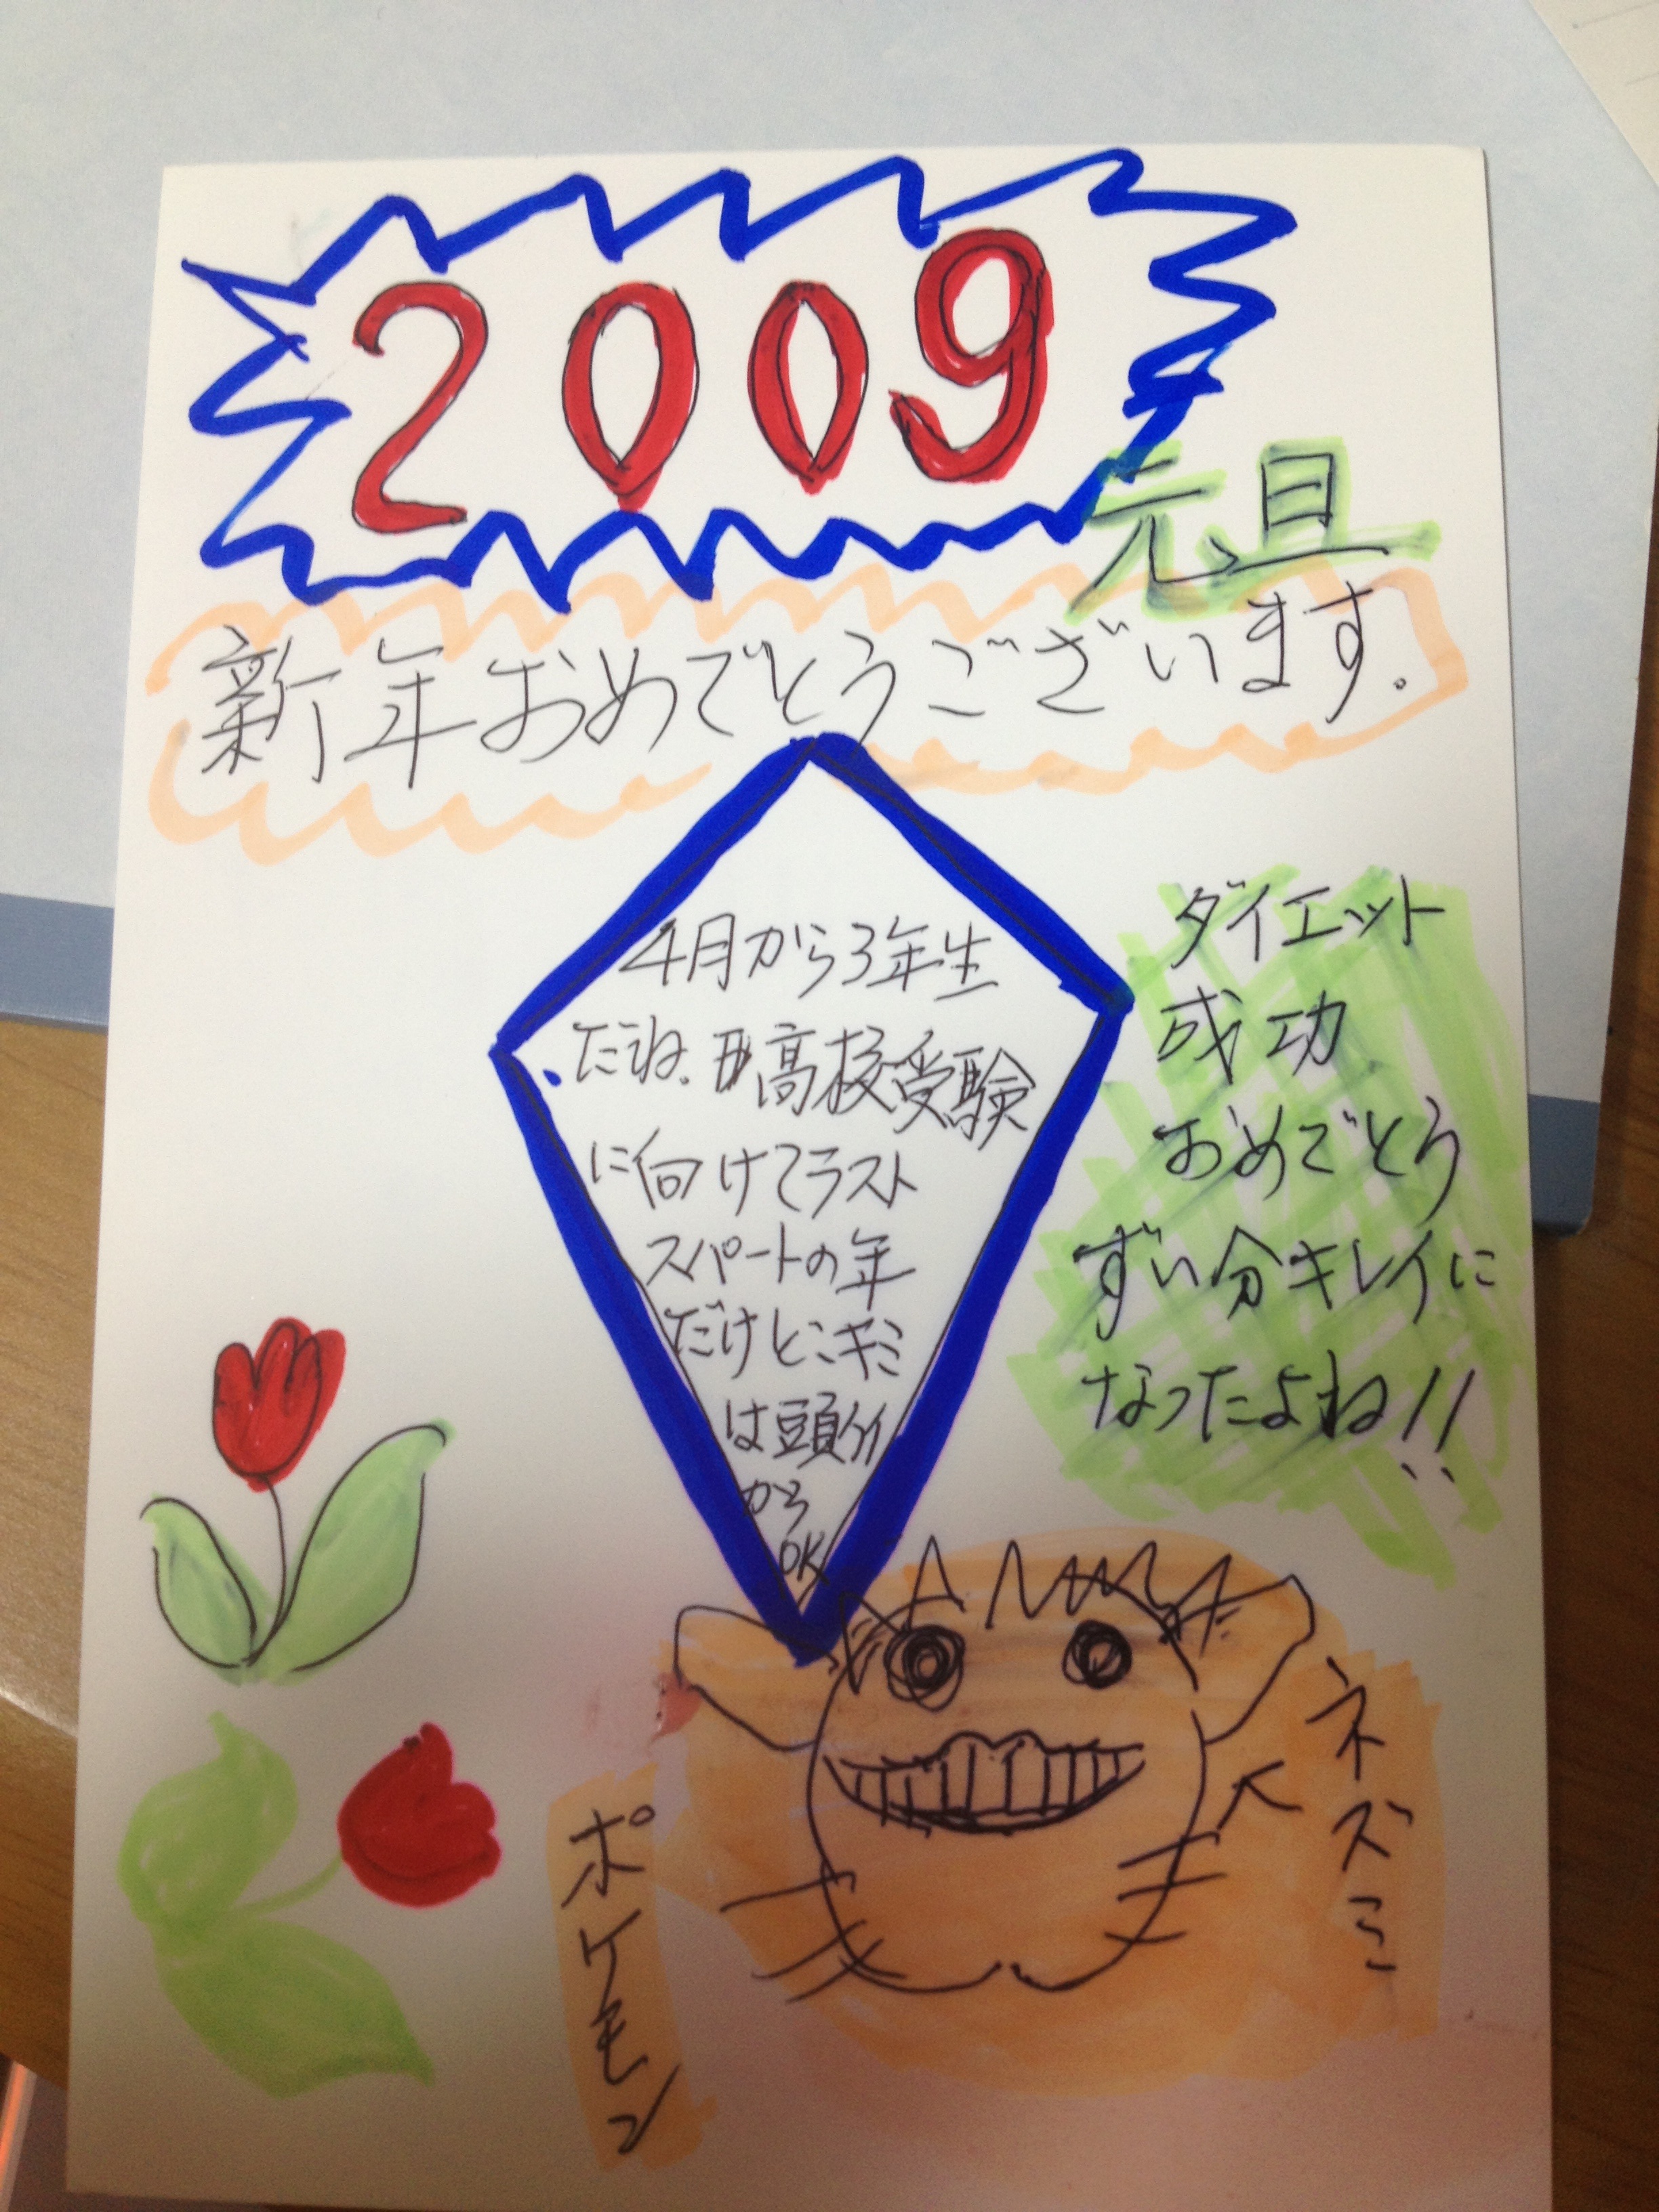 2009
元旦
新年おめでとうございます.
4月から3年生
だね.高校受験
に向けてラスト
スパートの年
だけどキミ
は頭
から
OK
ダイエット
成功
おめでとう
ずい分キレイに
なったよね!!
ネズミ
ポケモン